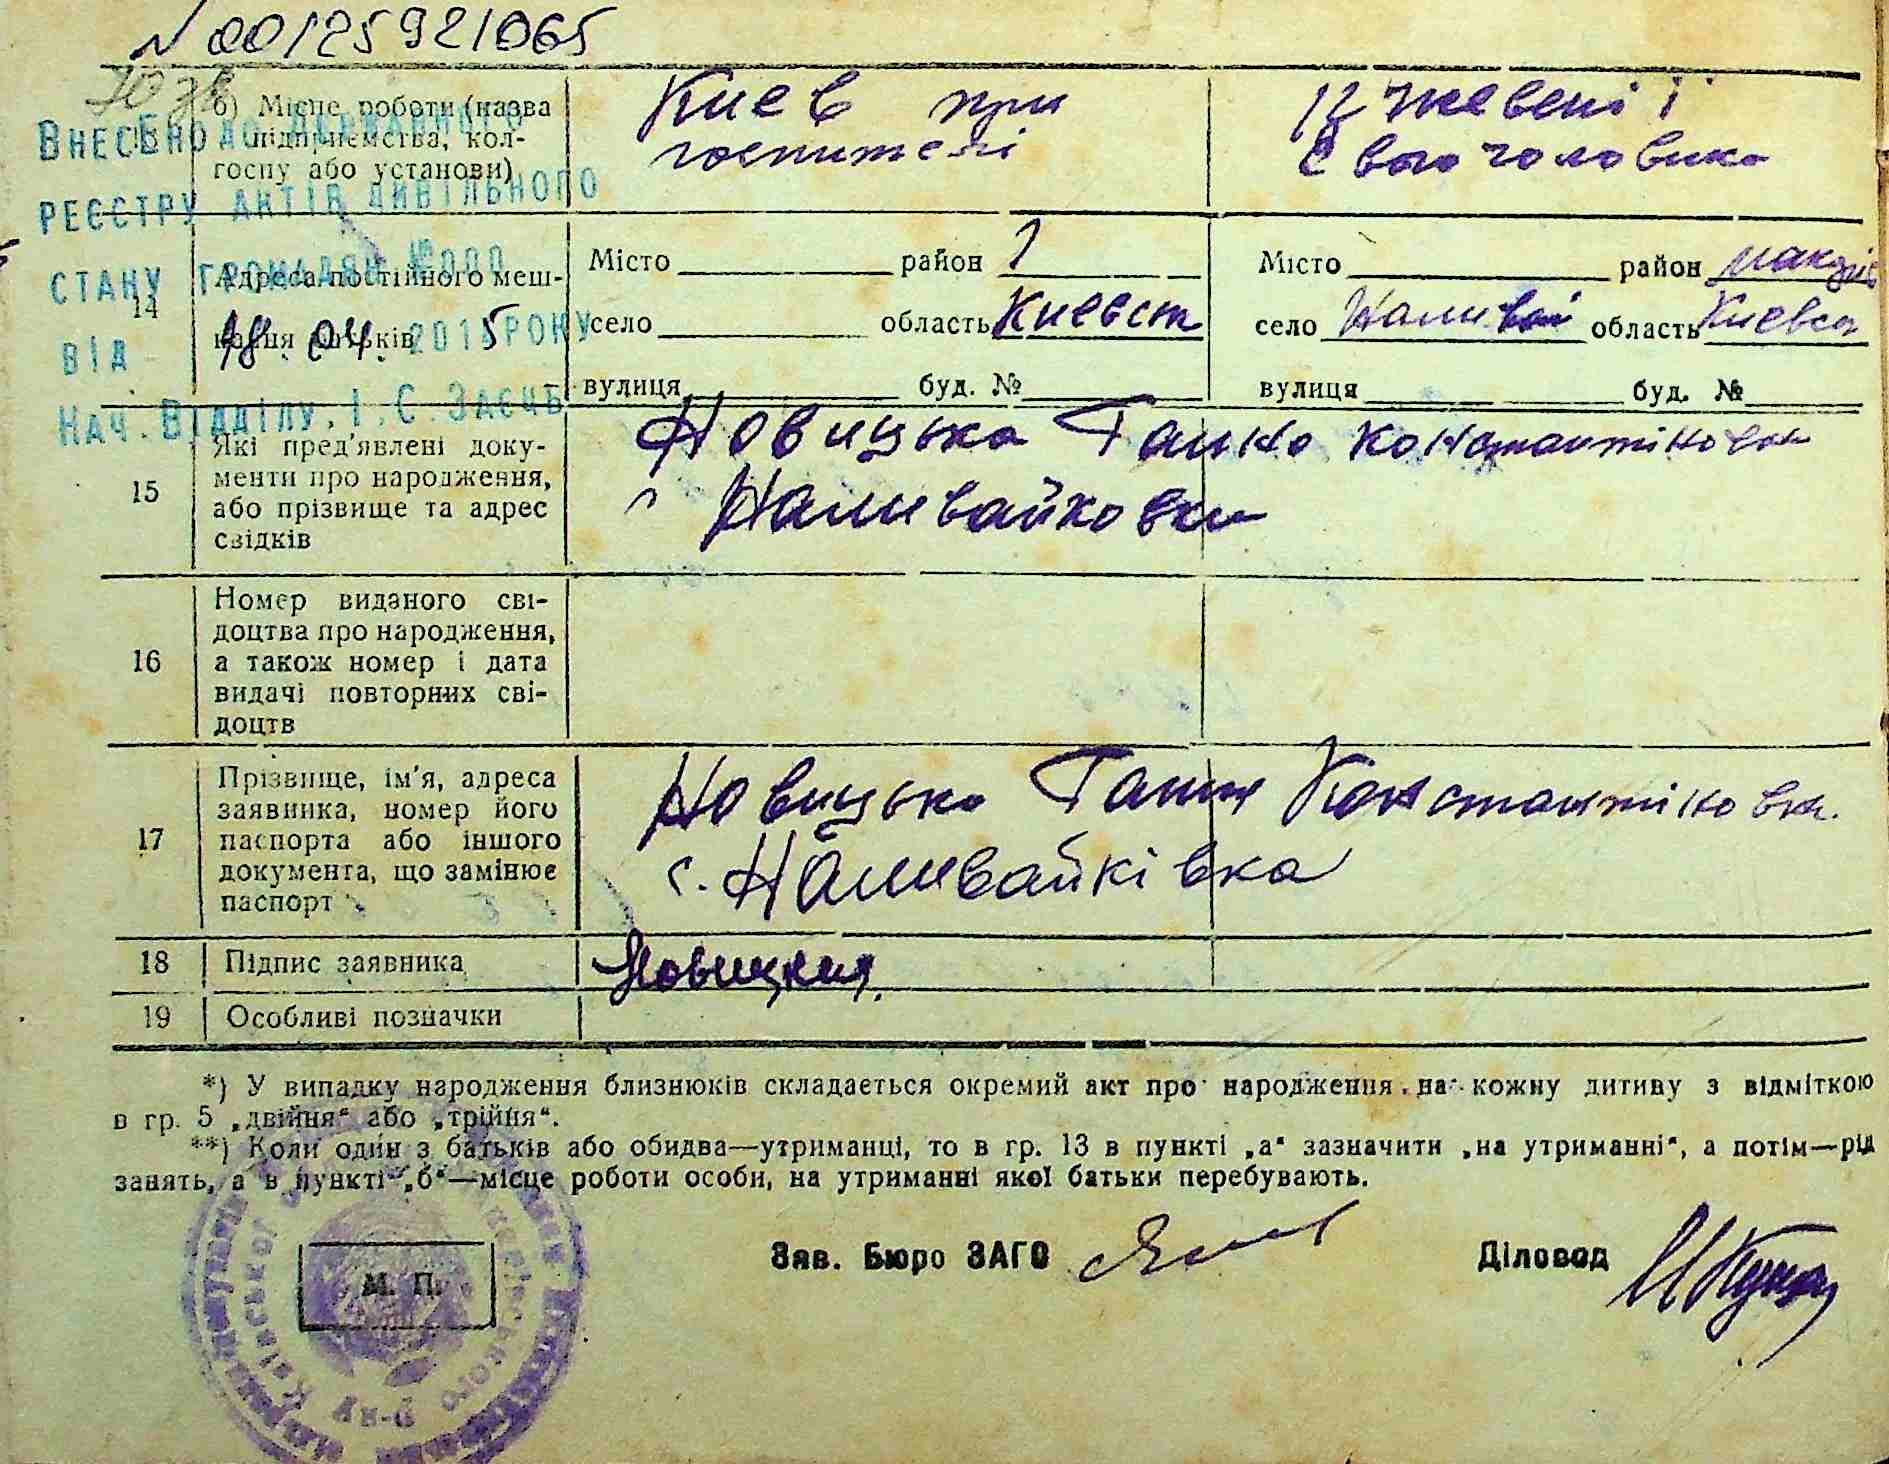 N 00125921065
ВНЕСЕНО ДО ДЕРЖАВНОГО
РЕЄСТРУ АКТІВ ЦИВІЛЬНОГО
СТАНУ ГРОМАДЯН №000
ВІД 18.04.2015 РОКУ
НАЧ. ВІДДІЛУ. І.С. ЗАЄЦЬ
б) Місце роботи (назва
підприємства, кол-
госпу або установи)
Киев при
госпителі
Свого чоловика
14
Адреса постійного меш-
кання батьків
Місто район
село область Киевск
вулиця буд. №
Місто район
село область Киевск
вулиця буд. №
15
Які пред'явлені доку-
менти про народження,
або прізвище та адрес
свідків
Новицька Ганна Константіновна
с Наливайковка
16
Номер виданого сві-
доцтва про народження,
а також номер і дата
видачі повторних сві-
доцтв
17
Прізвище, ім'я, адреса
заявника, номер його
паспорта або іншого
документа, що замінює
паспорт
Новицька Ганна Константіновна.
с. Наливайківка
18 Підпис заявника
Новицкая.
19 Особливі позначки
*) У випадку народження близнюків складається окремий акт про народження на кожну дитину з відміткою
в гр. 5 „двійня“ або „трійня“.
**) Коли один з батьків або обидва—утриманці, то в гр. 13 в пункті „а“ зазначити „на утриманні“, а потім—рід
занять, а в пункті „б“—місце роботи особи, на утриманні якої батьки перебувають.
М. П.
Зав. Бюро ЗАГС
Діловод